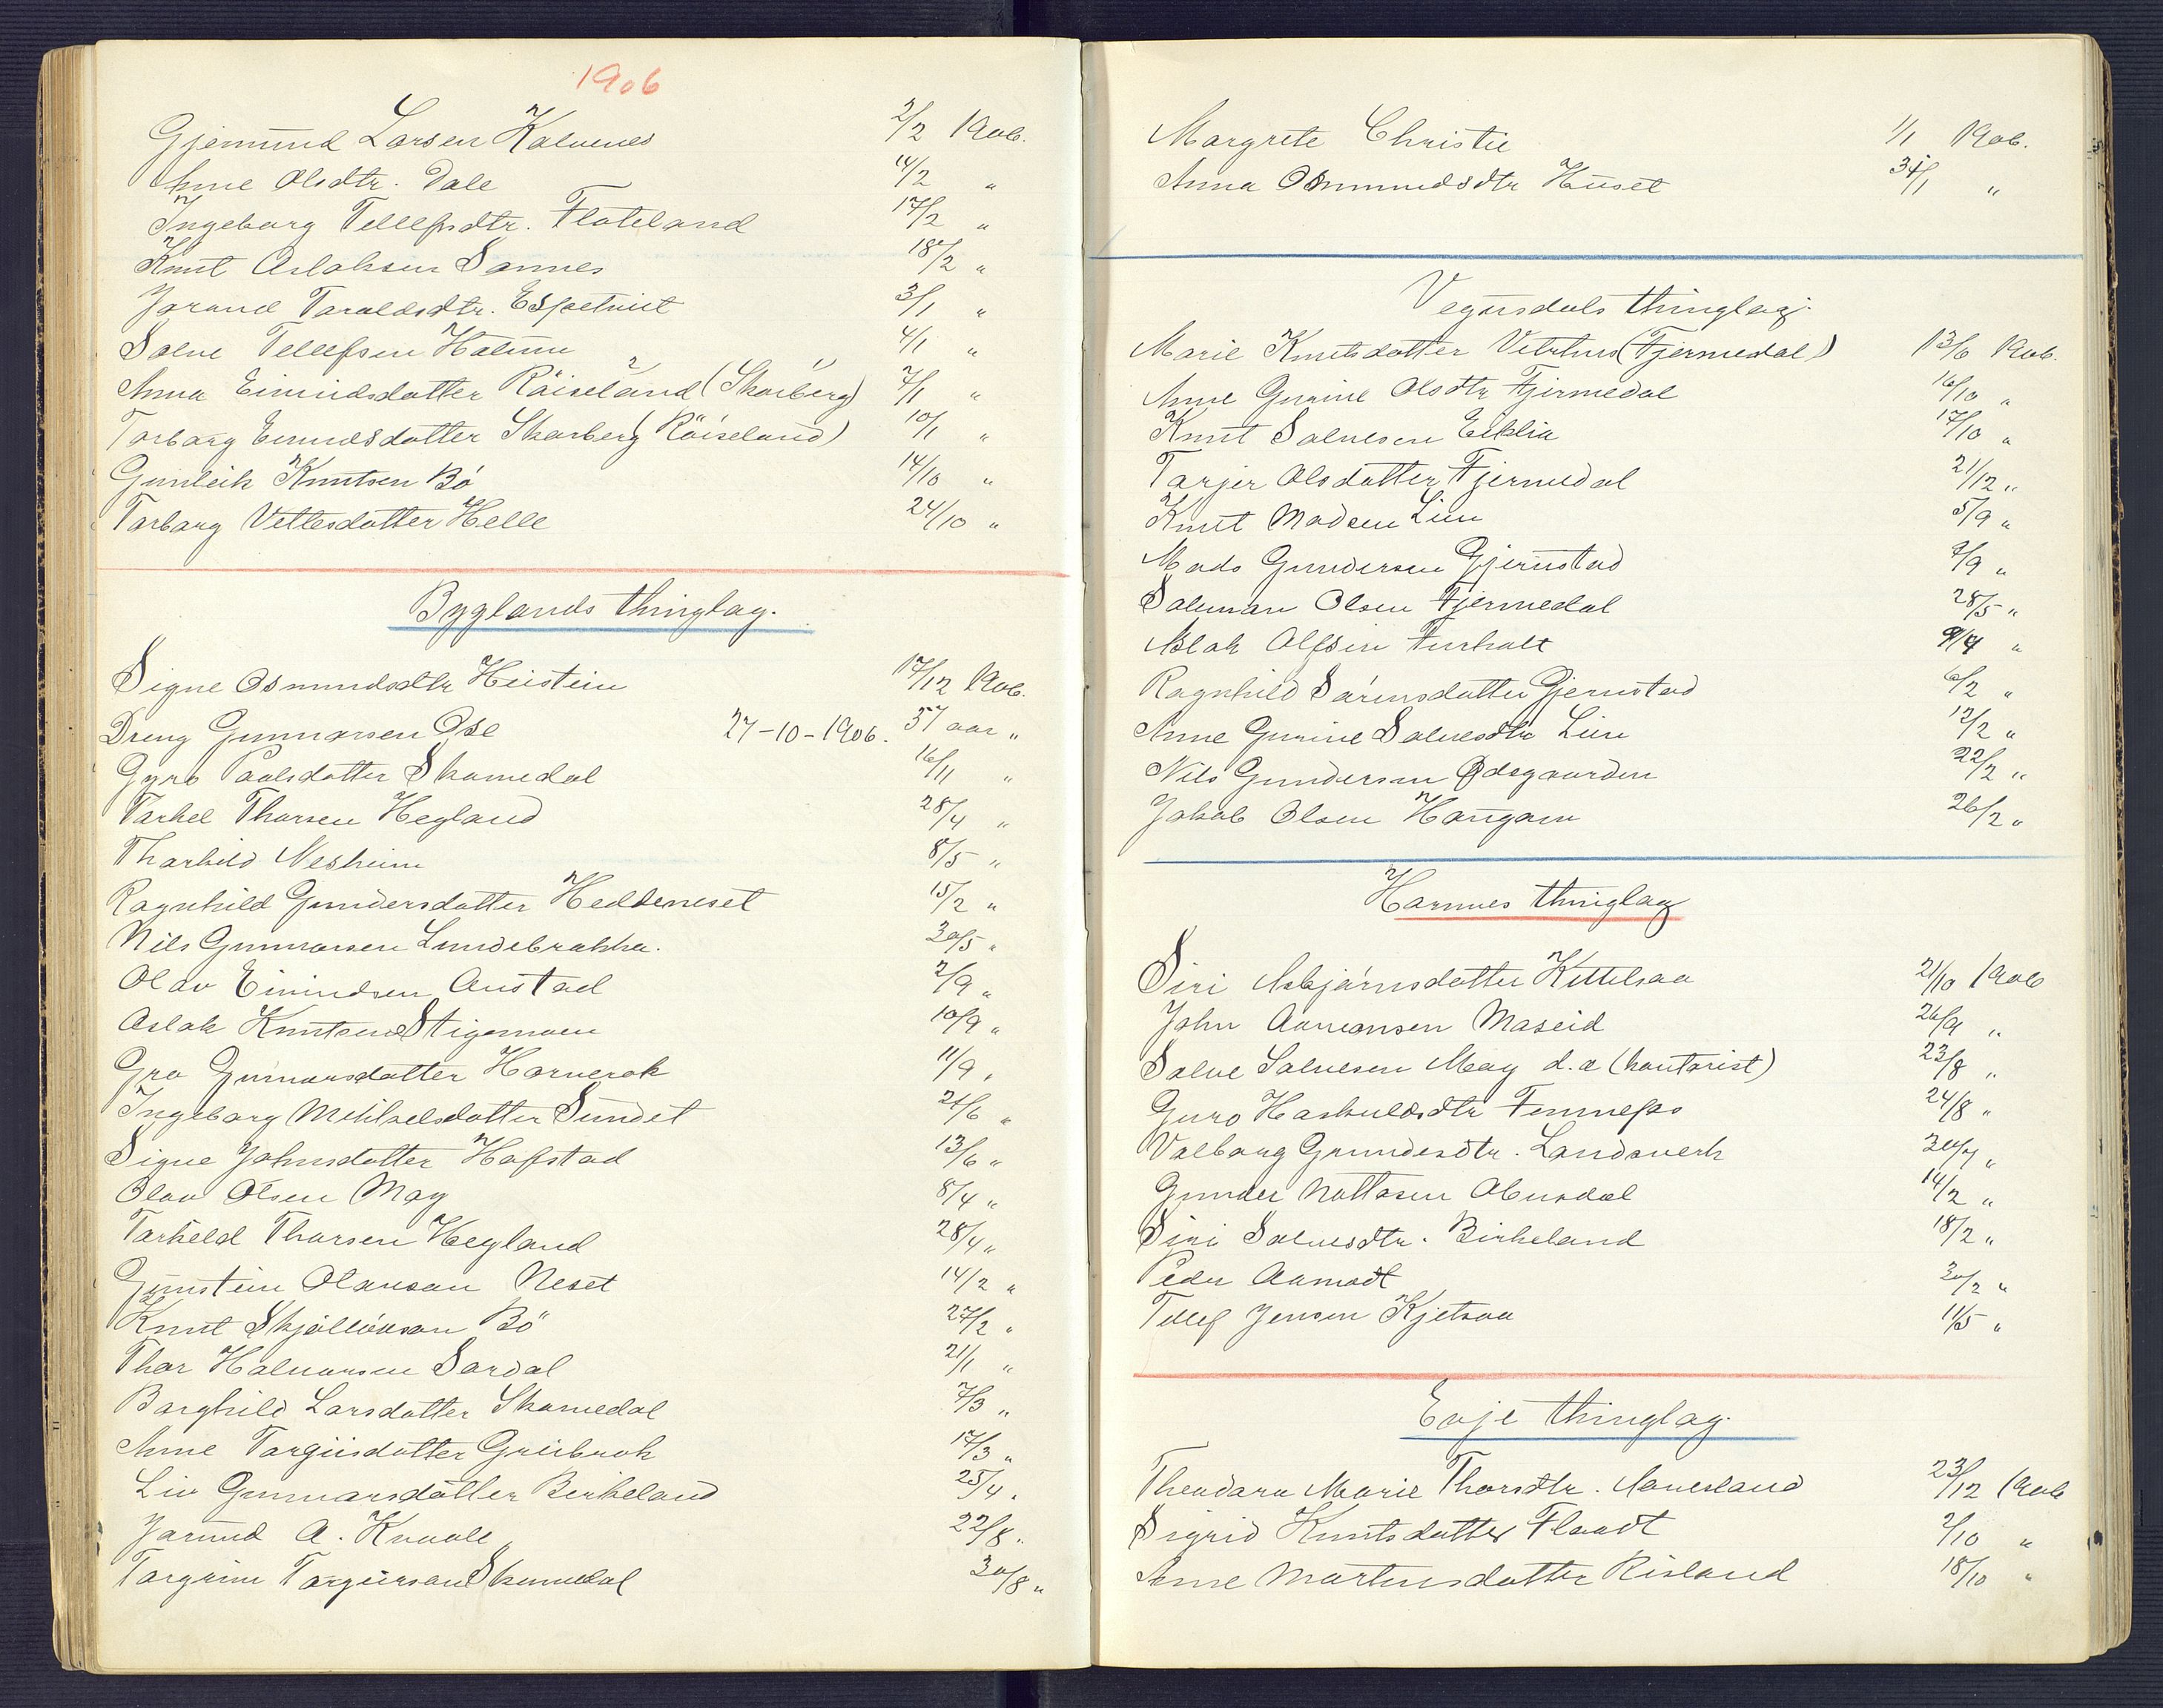 1906
Gjermund Larsen Kalvenes 2/2 1906.
Anne Olsdtr. Dale 14/2 "
Ingeborg Tellefsdtr. Flateland 17/2 "
Knut Aslaksen Sannes 18/2 "
Jorand Taraldsdtr. Espetveit 3/1 "
Salve Tellefsen Halum 4/1 "
Anna Eivindsdatter Röiseland (Skarberg) 7/1 "
Torbarg Eivindsdatter Skarberg (Röiseland) 10/1 "
Gunleik Knutsen Bó 14/10 "
Tarbarg Vettesdatter Helle 24/10 "
Byglands thinglag.
Signe Osmundsdtr Heistein 17/12 1906.
Dreng Gunnarsen Ose 27-10-1906. 57 aar "
Gyro Paalsdatter Skamedal 16/11 "
Tarkel Tharsen Hegland 28/4 "
Tharhild Nesheim 8/5 "
Ragnhild Gundersdatter Heddeneset 15/2 "
Nils Gunnarsen Lundebrakka. 30/5 "
Olav Eivindsen Austad 2/9 "
Aslak Knutsen Stigemoen 10/9 "
Gro Gunnarsdatter Harverak 11/9 "
Ingeborg Mikkelsdatter Sundet 21/6 "
Signe Johnsdatter Hafstad 13/6 "
Olav Olsen Moy 8/4 "
Tarkeld Tharsen Hegland 28/4 "
Gunstein Olavson Neset 14/2 "
Knut Skjöllövson Bö 27/2 "
Thor Halvorsen Sordal 21/1 "
Barghild Larsdatter Skamedal 7/3 "
Anne Targiisdatter Greibrok 17/3 "
Liv Gunnarsdatter Birkeland 25/4 "
Jorund A. Kvaale 22/8 "
Targrim Targeirson Skamedal 30/8 "
Margrete Christie 1/1 1906.
Anna Osmundsdtr Huset 31/1 "
Vegusdals thinglag.
Marie Knutsdatter Vetrhus (Fjermedal) 13/6 1906.
Anne Gurine Olsdtr Fjermedal 16/10 "
Knut Salvesen Eiklia 17/10 "
Tarjer Olsdatter Fjermedal 21/12 "
Knut Madsen Lien 5/9 "
Mads Gundersen Gjerustad 7/9 "
Salmon Olsen Fjermedal 28/5 "
Aslak Alfsen Furholt 9/4 "
Ragnhild Sörensdatter Gjerustad 6/2 "
Anne Gurine Salvesdtr Lien 12/2 "
Nils Gundersen Ødegaarden 22/2 "
Jakob Olsen Haugom 26/2 "
Hornnes thinglag
Siri Asbjörnsdatter Kittelsaa 21/10 1906
John Aanonsen Maseid 26/9 "
Salve Salvesen Moy d.a (kontorist) 23/8 "
Guro Haskuldsdtr Fennefos 24/8 "
Valborg Gundersdtr. Landsverk 30/7 "
Gunder Nottosen Abusdal 14/2 "
Siri Salvesdtr. Birkeland 18/2 "
Peder Aamodt 20/2 "
Tellef Jensen Kjetsaa 11/5 "
Evje thinglag.
Theodora Marie Thorsdtr. Aanesland 23/12 1906
Sigrid Knutsdatter Flaadt 2/10 "
Anne Martinsdatter Risland 18/10 "